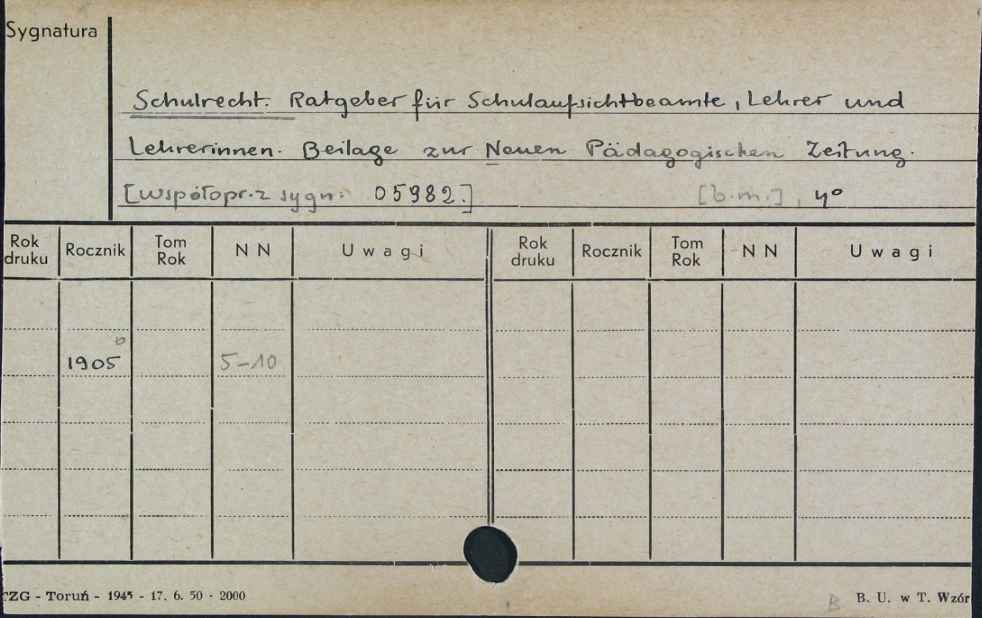 Sygnatura
Schulrecht. Ratgeber für Schulaufsichtbeamte, Lehrer und
Lehrerinnen. Beilage zur Neuen Pädagogischen Zeitung.
[Współopr. z sygn. 05982.] [b.m.], 4°
Rok druku Rocznik Tom Rok NN Uwagi Rok druku Rocznik Tom Rok NN Uwagi
b
1905 5-10
CZG - Toruń - 1945 - 17. 6. 50 - 2000 B B. U. w T. Wzór